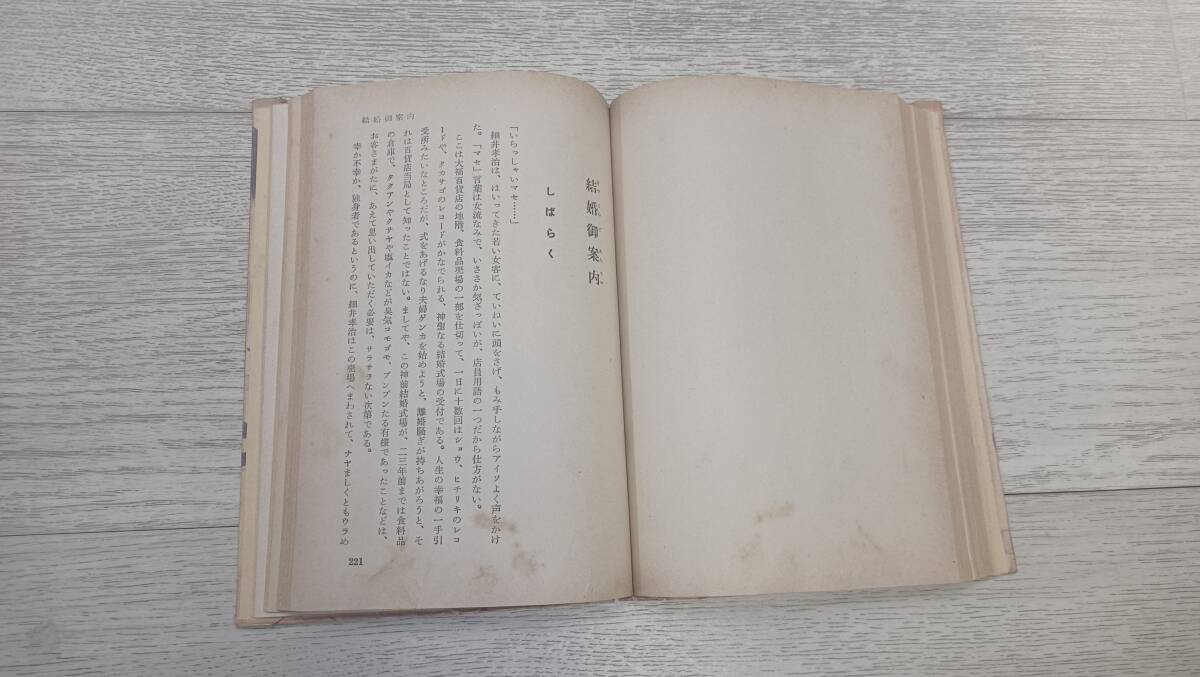 結婚御案内
結婚御案内
しばらく
「いらっしゃいマセ……」
細井孝治は、はいってきた若い女客に、ていねいに頭をさげ、もみ手しながらアイソよく声をかけ
た。「マセ」言葉は女流なみで、いささか気ざっぽいが、店員用語の一つだから仕方がない。
ここは大福百貨店の地階、食料品売場の一部を仕切って、一日に十数回はショウ、ヒチリキのレコ
ードや、タカサゴのレコードがかなでられる、神聖なる結婚式場の受付である。人生の幸福の一手引
受所みたいなところだが、式をあげるなり夫婦ゲンカを始めようと、離婚騒ぎが持ちあがろうと、そ
れは百貨店当局として知ったことではない。ましてや、この神前結婚式場が、二三年前までは食料品
の倉庫で、タクアンやクサヤや塩イカなどが臭気コモゴモ、プンプンたる有様であったことなどは、
お客さまがたに、あえて思い出していただく必要は、サラサラない次第である。
幸か不幸か、独身者であるというのに、細井孝治はこの売場へまわされて、ナヤましくともウラめ
221